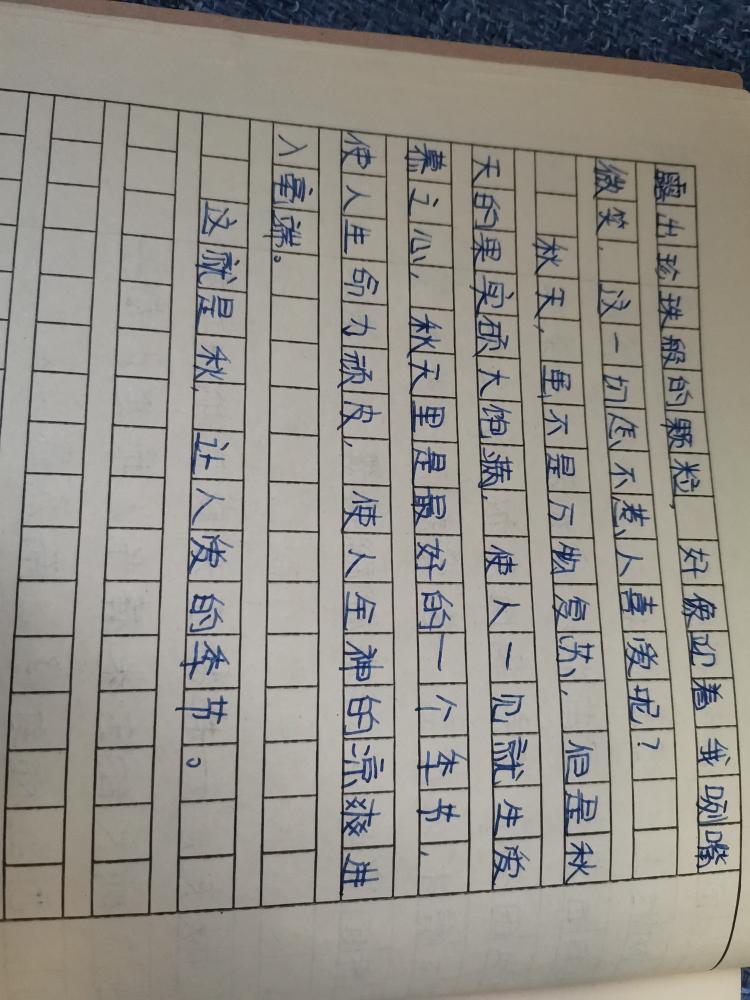 露出珍珠般的颗粒，好像迎着我咧嘴
微笑．这一切怎不惹人喜爱呢？
秋天，虽不是万物复苏，但是秋
天的果实硕大饱满，使人一见就生爱
慕之心，秋天里是最好的一个季节，
使人生命力顽皮，使人全神的凉爽进
入室
这就是秋，让人爱的季节。